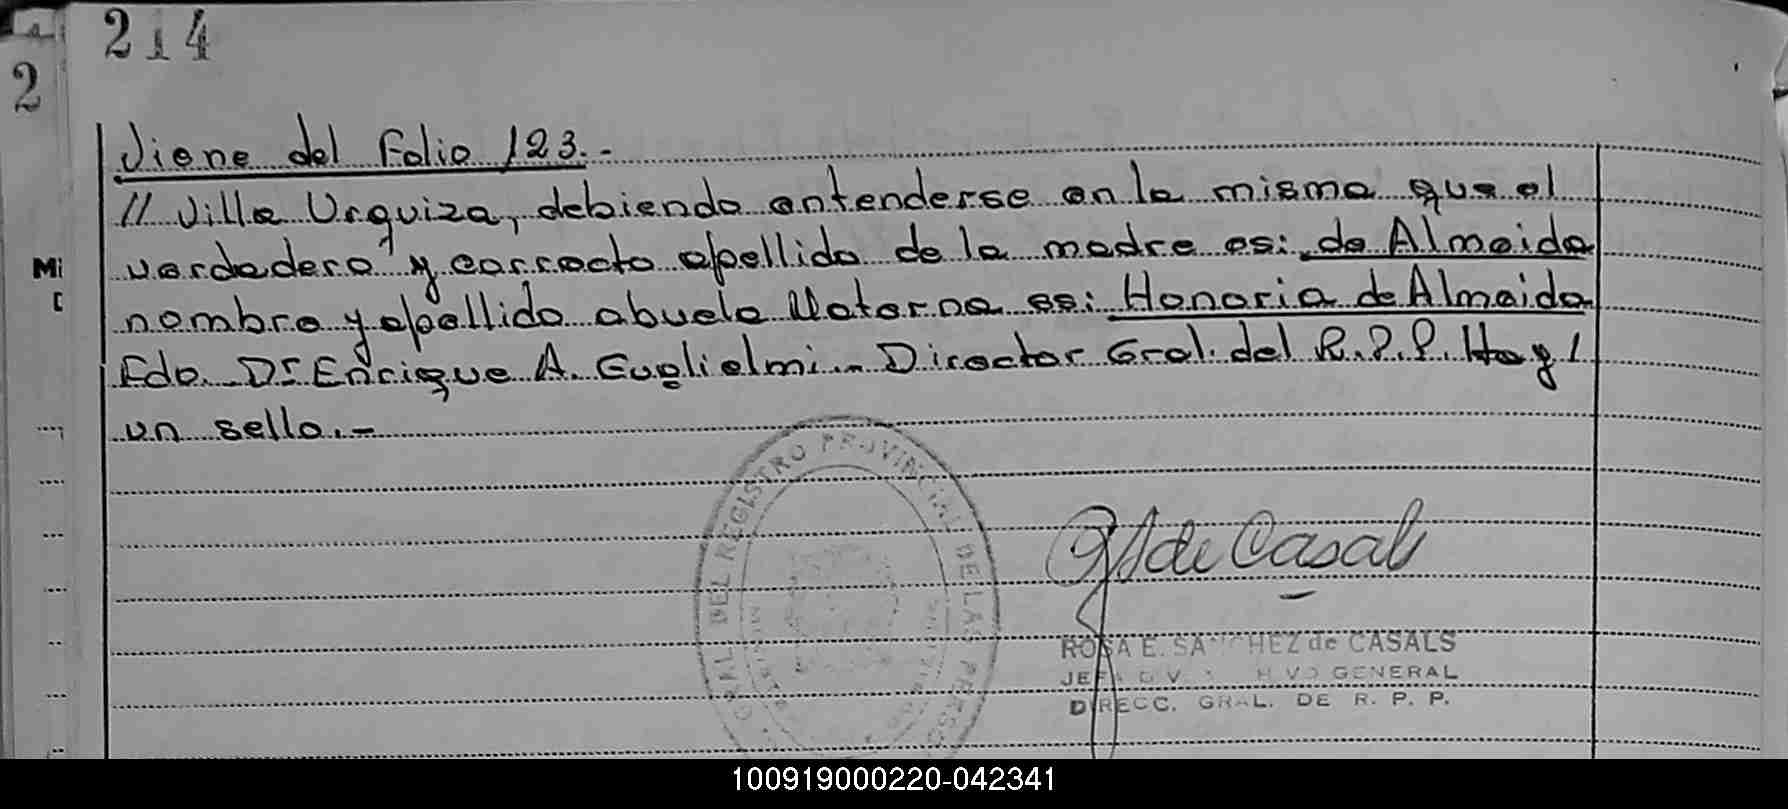 214
2
Viene del Folio 123.-
// Villa Urquiza, debiendo entenderse en la misma que el
verdadero y correcto apellido de la madre es: de Almeida
nombre y apellido abuela Materna es: Honoria de Almeida
Fdo. Dr Enrique A. Guglielmi.- Director Gral. del R.P.P. Hay
un sello.-
Mi
GRAL. DEL REGISTRO PROVINCIAL DE LAS PERSO
de Casals
ROSA E. SANCHEZ de CASALS
JEFA DIV. GENERAL
DIRECC. GRAL. DE R. P. P.
100919000220-042341